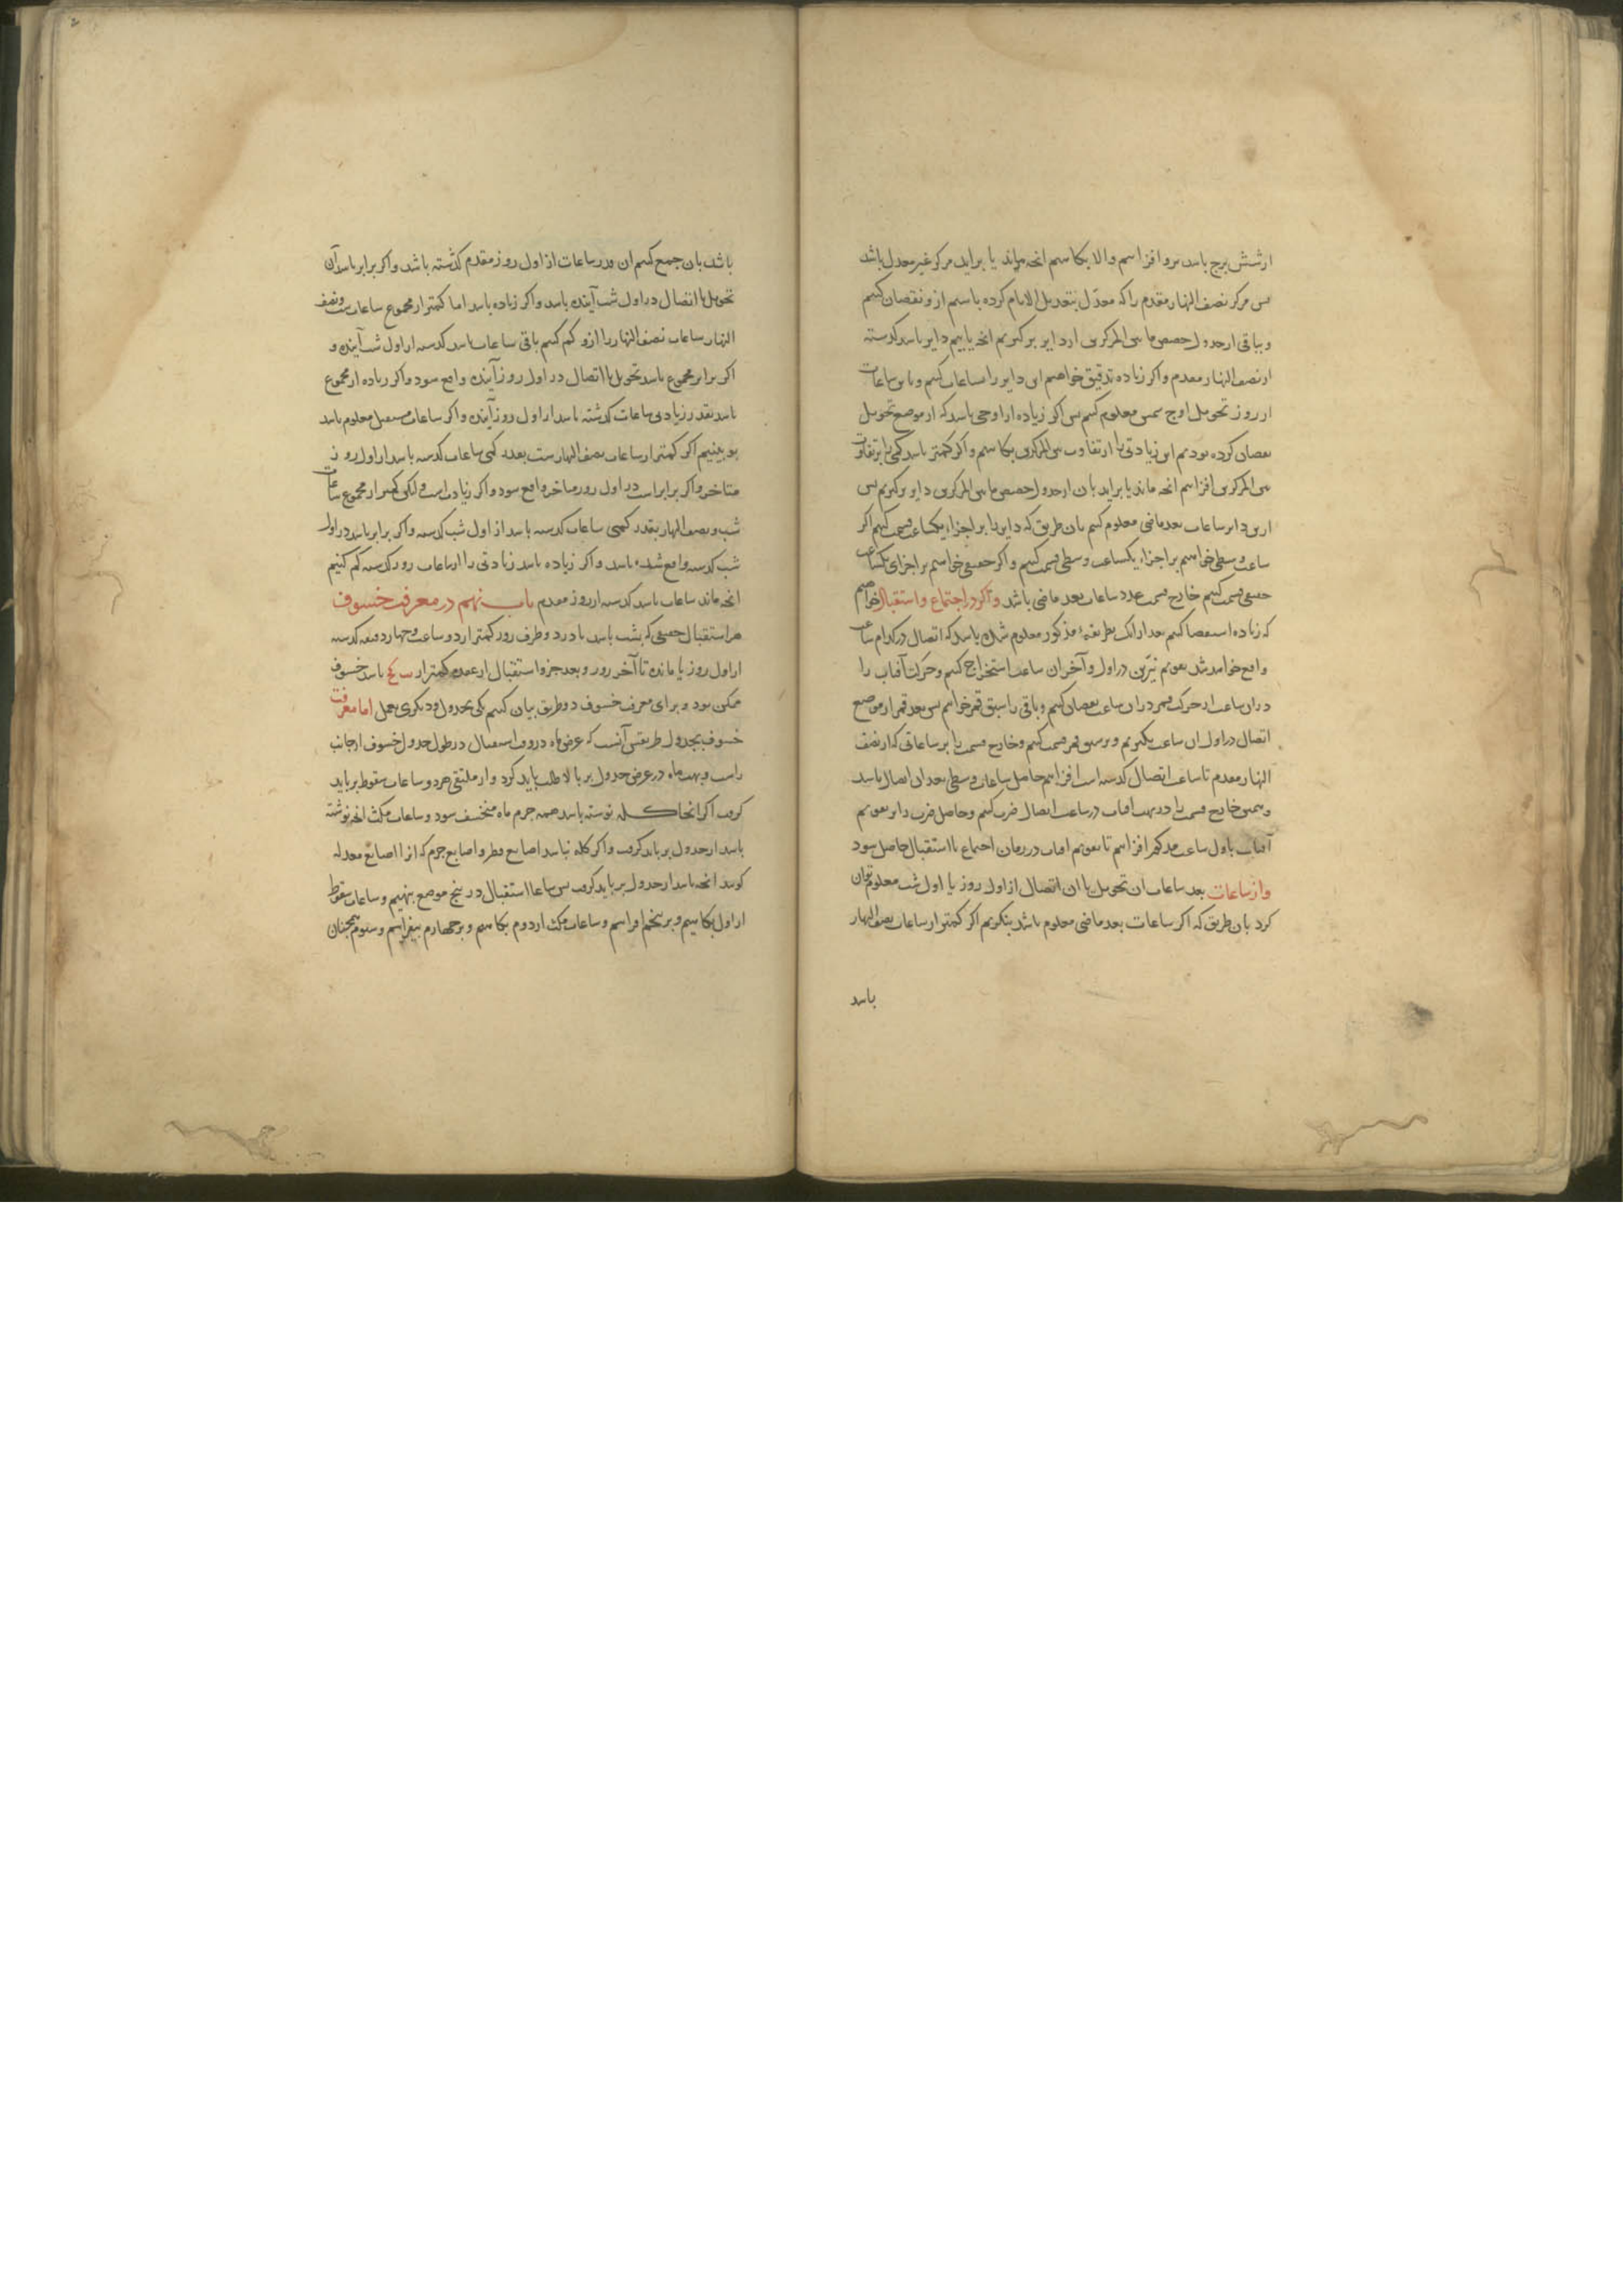 ارشش برج باشد برو افزاییم والا بکاهیم انچه بماند یا براید مرکز غیر معدل باشد
پس مرکز نصف النهار مقدم را که معدل بتعدیل الایام کرده باشیم ازو نقصان کنیم
و بباقی از جدول حصص مابین المرکزین از دایر بر کیریم انچه یابیم دایر باشد کذشته
از نصف النهار مقدم واکر زیاده تدقیق خواهیم این دایر را ساعات کنیم و باین ساعات
از روز تحویل اوج شمس معلوم کنیم پس اکر زیاده از اوجی باشد که از موضع تحویل
نقصان کرده بودیم این زیادتی را از تفاوت بین المرکزین بکاهیم واکر کمتر باشد کمی را بر تفاوت
بین المرکزین افزاییم انچه ماند یا براید بان از جدول حصص مابین المرکزین دایر برکیریم پس
ازین دایر ساعات بعد ماضی معلوم کنیم بان طریق که دایر را بر اجزاء یکساعت قسمت کنیم اکر
ساعت وسطی خواهیم بر اجزاء یکساعت وسطی قسمت کنیم واکر حقیقی خواهیم بر اجزای یکساعت
حقیقی قسمت کنیم خارج قسمت عدد ساعات بعد ماضی باشد واکر در اجتماع و استقبال خواهیم
که زیاده استقصا کنیم بعد ازانک بطریقه مذکور معلوم شده باشد که اتصال در کدام ساعت
واقع خواهد شد تقویم نیرین در اول و آخر ان ساعت استخراج کنیم وحرکت آفتاب را
دران ساعت از حرکت قمر دران ساعت نقصان کنیم و باقی را سبق قمر خوانیم پس بعد قمر از موضع
اتصال در اول ان ساعت بکیریم و بر سبق قمر قسمت کنیم وخارج قسمت را بر ساعاتی که از نصف
النهار مقدم تا ساعت اتصال کذشته است افزاییم حاصل ساعات وسطی بعد ان اتصال باشد
وهمین خارج قسمت را در بهت افتاب در ساعت اتصال ضرب کنیم وحاصل ضرب را بر تقویم
آفتاب باول ساعت مذکور افزاییم تا تقویم افتاب در زمان اجتماع یا استقبال حاصل شود
واز ساعات بعد ساعات ان تحویل یا ان اتصال از اول روز یا اول شب معلوم توان
کرد بان طریق که اکر ساعات بعد ماضی معلوم باشد بنکریم اکر کمتر از ساعات نصف النهار
باشد
باشد بان جمع کنیم ان قدر ساعات از اول روز مقدم کذشته باشد واکر برابر باشد آن
تحویل یا اتصال در اول شب آینده باشد واکر زیاده باشد اما کمتر از مجموع ساعات شب و نصف
النهار ساعات نصف النهار را ازو کم کنیم باقی ساعات باشد کذشته از اول شب آینده و
اکر برابر مجموع باشد تحویل یا اتصال در اول روز آینده واقع شود واکر زیاده از مجموع
باشد بقدر زیادتی ساعات کذشته باشد از اول روز آینده واکر ساعات مستقبل معلوم باشد
بنکریم اکر کمتر از ساعات نصف النهارست بقدر کمی ساعات کذشته باشد از اول روز
متاخر واکر برابر است در اول روز متاخر واقع شود واکر زیادت است ولکن کمتر از مجموع ساعات
شب و نصف النهار بقدر کمی ساعات کذشته باشد از اول شب کذشته واکر برابر باشد در اول
شب کذشته واقع شده باشد واکر زیاده باشد زیادتی را از ساعات روز کذشته کم کنیم
انچه ماند ساعات باشد کذشته از روز مقدم باب نهم در معرفت خسوف
هر استقبال حقیقی که بشب باشد یا در دو طرف روز کمتر از دو ساعت و چهار دقیقه کذشته
از اول روز یا مانده تا آخر روز و بعد جزو استقبال از عقده کمتر از باشد خسوف
ممکن بود و برای معرفت خسوف دو طریق بیان کنیم یکی بجدول و دیکری بعمل اما معرفت
خسوف بجدول طریقش آنست که عرض ماه در وقت استقبال در طول جدول خسوف از جانب
راست و بهت ماه در عرض جدول بر بالا طلب باید کرد و از ملتقی هردو ساعات سقوط بر باید
کرفت اکر انجا کله نوشته باشد همه جرم ماه منخسف شود و ساعات مکث انچه نوشته
باشد از جدول بر باید کرفت واکر کله نباشد اصابع قطر و اصابع جرم که ازا اصابع معدله
کویند انچه باشد از جدول بر باید کرفت پس ساعات استقبال در پنج موضع بنهیم و ساعات سقوط
از اول بکاهیم و بر پنجم افزاییم و ساعات مکث از دوم بکاهیم و بر چهارم بیفزاییم و سیوم همچنان